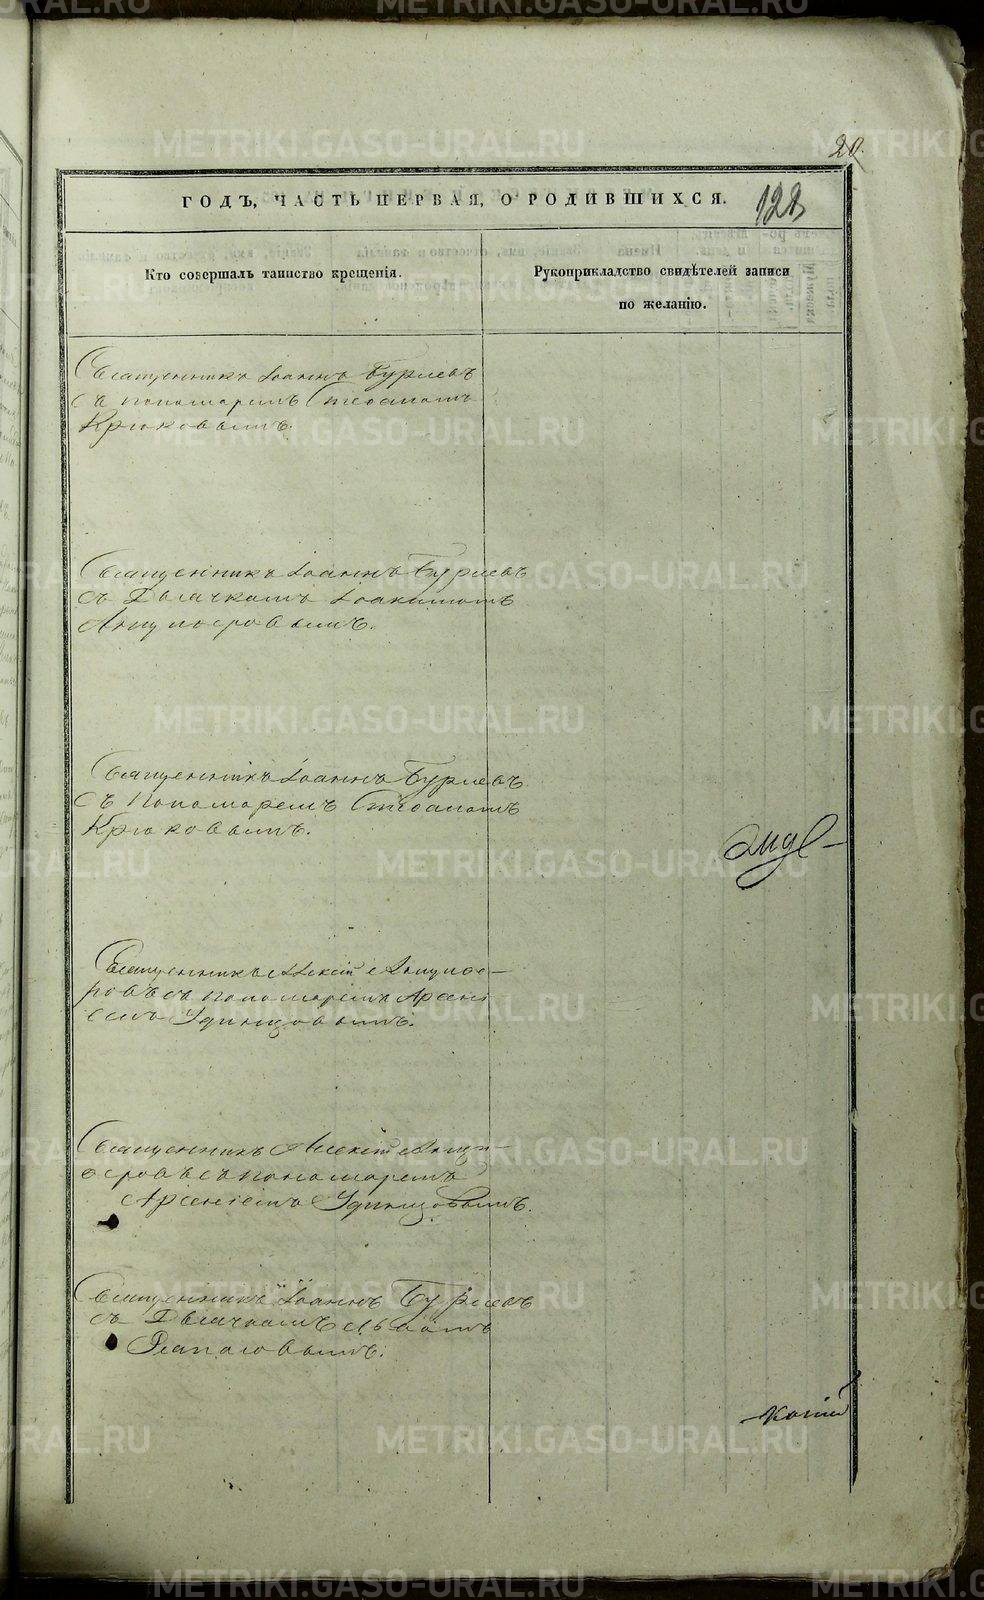 METRIKI.GASO-URAL.RU
20.
ГОДЪ, ЧАСТЬ ПЕРВАЯ, О РОДИВШИХСЯ.
128
Кто совершалъ таинство крещенія.
Рукоприкладство свидѣтелей записи
по желанію.
Священникъ Іоаннъ Бурлевъ
съ пономаремъ Стефаномъ
Крюковымъ.
Священникъ Іоаннъ Бурлевъ
съ Дьячкомъ Іоакимомъ
Анцыферовымъ.
Священникъ Іоаннъ Бурлевъ
съ пономаремъ Стефаномъ
Крюковымъ.
Священникъ Алексій Анцыфе-
ровъ съ пономаремъ Арсені
емъ Удинцовымъ.
Священникъ Алексій Анцы
феровъ съ пономаремъ
Арсеніемъ Удинцовымъ.
Священникъ Іоаннъ Бурлевъ
съ Дьячкомъ